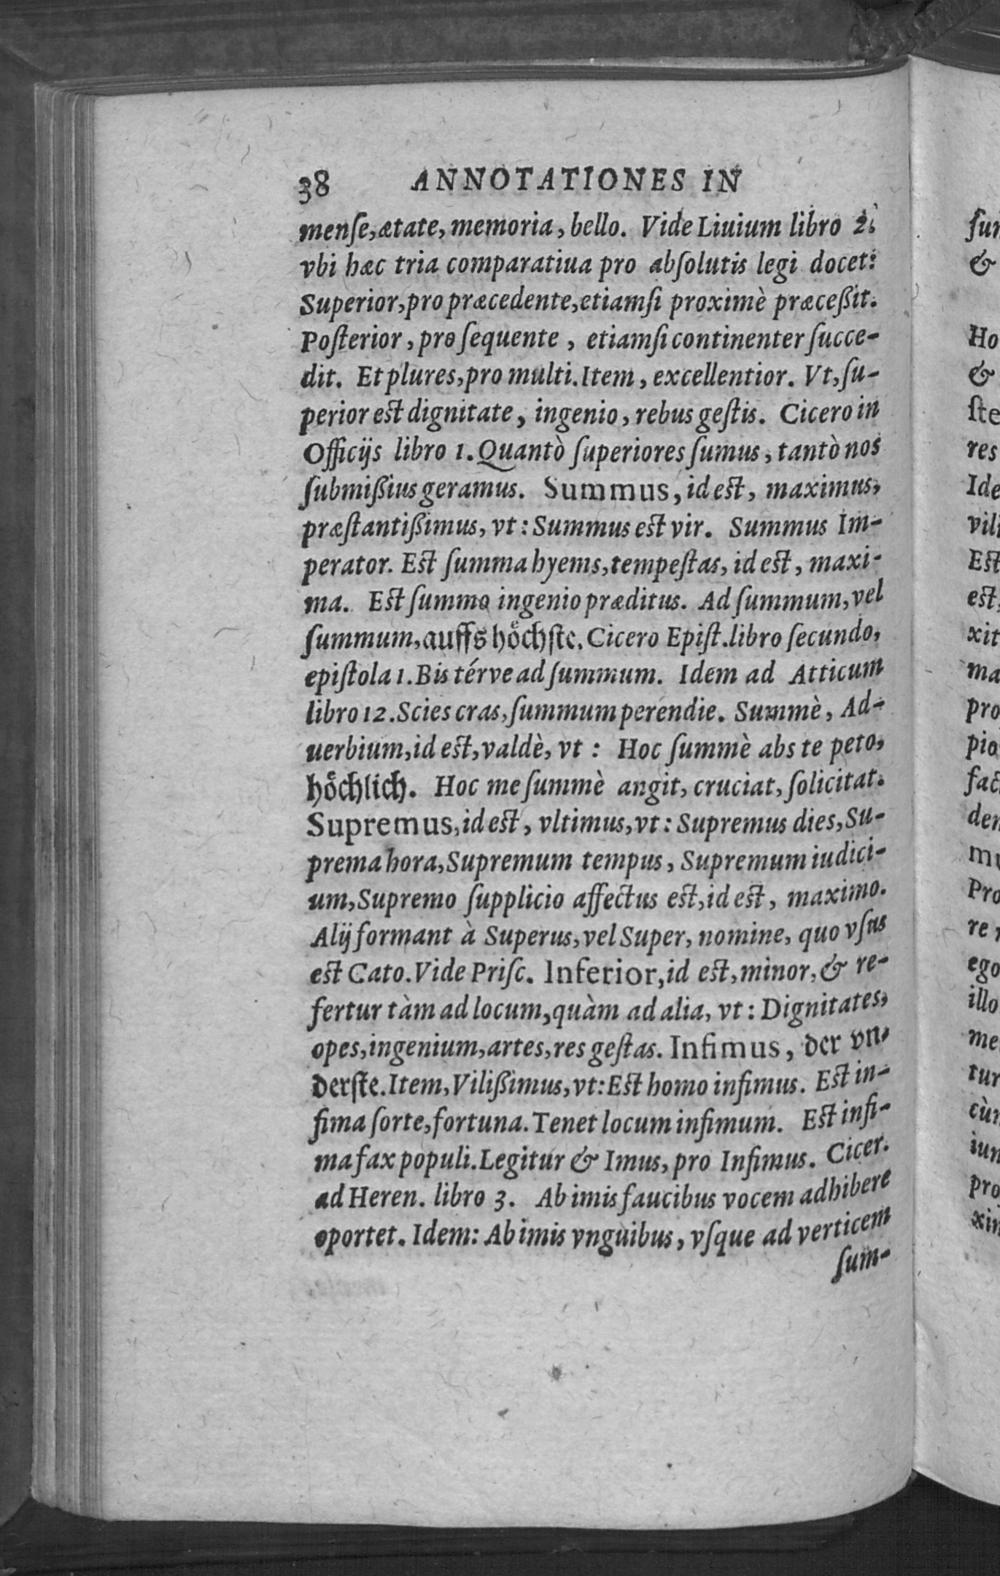 38 ANNOTATIONES IN
menſe, ætate, memoria, bello. Vide Liuium libro 2.
vbi hæc tria comparatiua pro abſolutis legi docet:
Superior, pro præcedente, etiamſi proximè præceßit.
Poſterior, pro ſequente, etiamſi continenter ſucce-
dit. Et plures, pro multi. Item, excellentior. Vt, ſu-
perior eſt dignitate, ingenio, rebus geſtis. Cicero in
Officijs libro 1. Quantò ſuperiores ſumus, tantò nos
ſubmißius geramus. Summus, id eſt, maximus,
præſtantißimus, vt: Summus eſt vir. Summus Im-
perator. Eſt ſumma hyems, tempeſtas, id eſt, maxi-
ma. Eſt ſummo ingenio præditus. Ad ſummum, vel
ſummum, auffs hoͤchſte. Cicero Epiſt. libro ſecundo,
epiſtola 1. Bis térve ad ſummum. Idem ad Atticum
libro 12. Scies cras, ſummum perendie. Summè, Ad-
uerbium, id eſt, valdè, vt: Hoc ſummè abs te peto,
hoͤchlich. Hoc me ſummè angit, cruciat, ſolicitat.
Supremus, id eſt, vltimus, vt: Supremus dies, Su-
prema hora, Supremum tempus, Supremum iudici-
um, Supremo ſupplicio affectus eſt, id eſt, maximo.
Alij formant à Superus, vel Super, nomine, quo vſus
eſt Cato. Vide Priſc. Inferior, id eſt, minor, & re-
fertur tàm ad locum, quàm ad alia, vt: Dignitates,
opes, ingenium, artes, res geſtas. Infimus, der vn-
derſte. Item, Vilißimus, vt: Eſt homo infimus. Eſt in-
fima ſorte, fortuna. Tenet locum infimum. Eſt infi-
ma fax populi. Legitur & Imus, pro Infimus. Cicer.
ad Heren. libro 3. Ab imis faucibus vocem adhibere
oportet. Idem: Ab imis vnguibus, vſque ad verticem
ſum-
ſur
&
Ho
&
ſte
res
Ide
vili
Eſt
eſt,
xit
ma
pro
pio
fac
den
mu
Pro
re
ego
illo
me
tur
cùn
iun
pro
xin